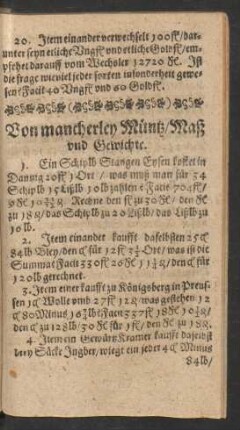 20. Item einander verwechselt 100ff/dar-
unter seyn etliche Vngff vnd etliche Goldff/em-
pfehet darauff vom Wechsler 12720 ₰. Ist
die frage wieviel jeder sorten insonderheit gewe-
sen? Facit 40 Vngff vnd 60 Goldff.
Von mancherley Müntz/Maß
vnd Gewichte.
1. Ein Schiplb Stangen Eysen kostet in
Dantzig 20ff 1 Ort / was muß man für 34
Schiplb 15 Lißlb 10lb zahlen? Facit 704ff/
Rechne den ff zu 30 / den
zu 18₰/das Schiplb zu 20 Lißlb/das Lißlb zu
16lb.
2. Item einander kaufft daselbsten 25
84lb Bley/den für 12ff Ort/was ist die
Summa? Facit 330ff 26 / den für
120lb gerechnet.
3. Item einer kaufft zu Königsberg in Preus-
sen Wolle vmb 27ff 12 was gestehen 12
80 Minus lb? Facit 337ff 18
den zu 128lb/30 für 1ff/ den zu 18₰.
4. Item ein Gewürtz Kramer kaufft daselbst
Säcke Ingber/wiegt ein jeder 4 Minus
84lb/